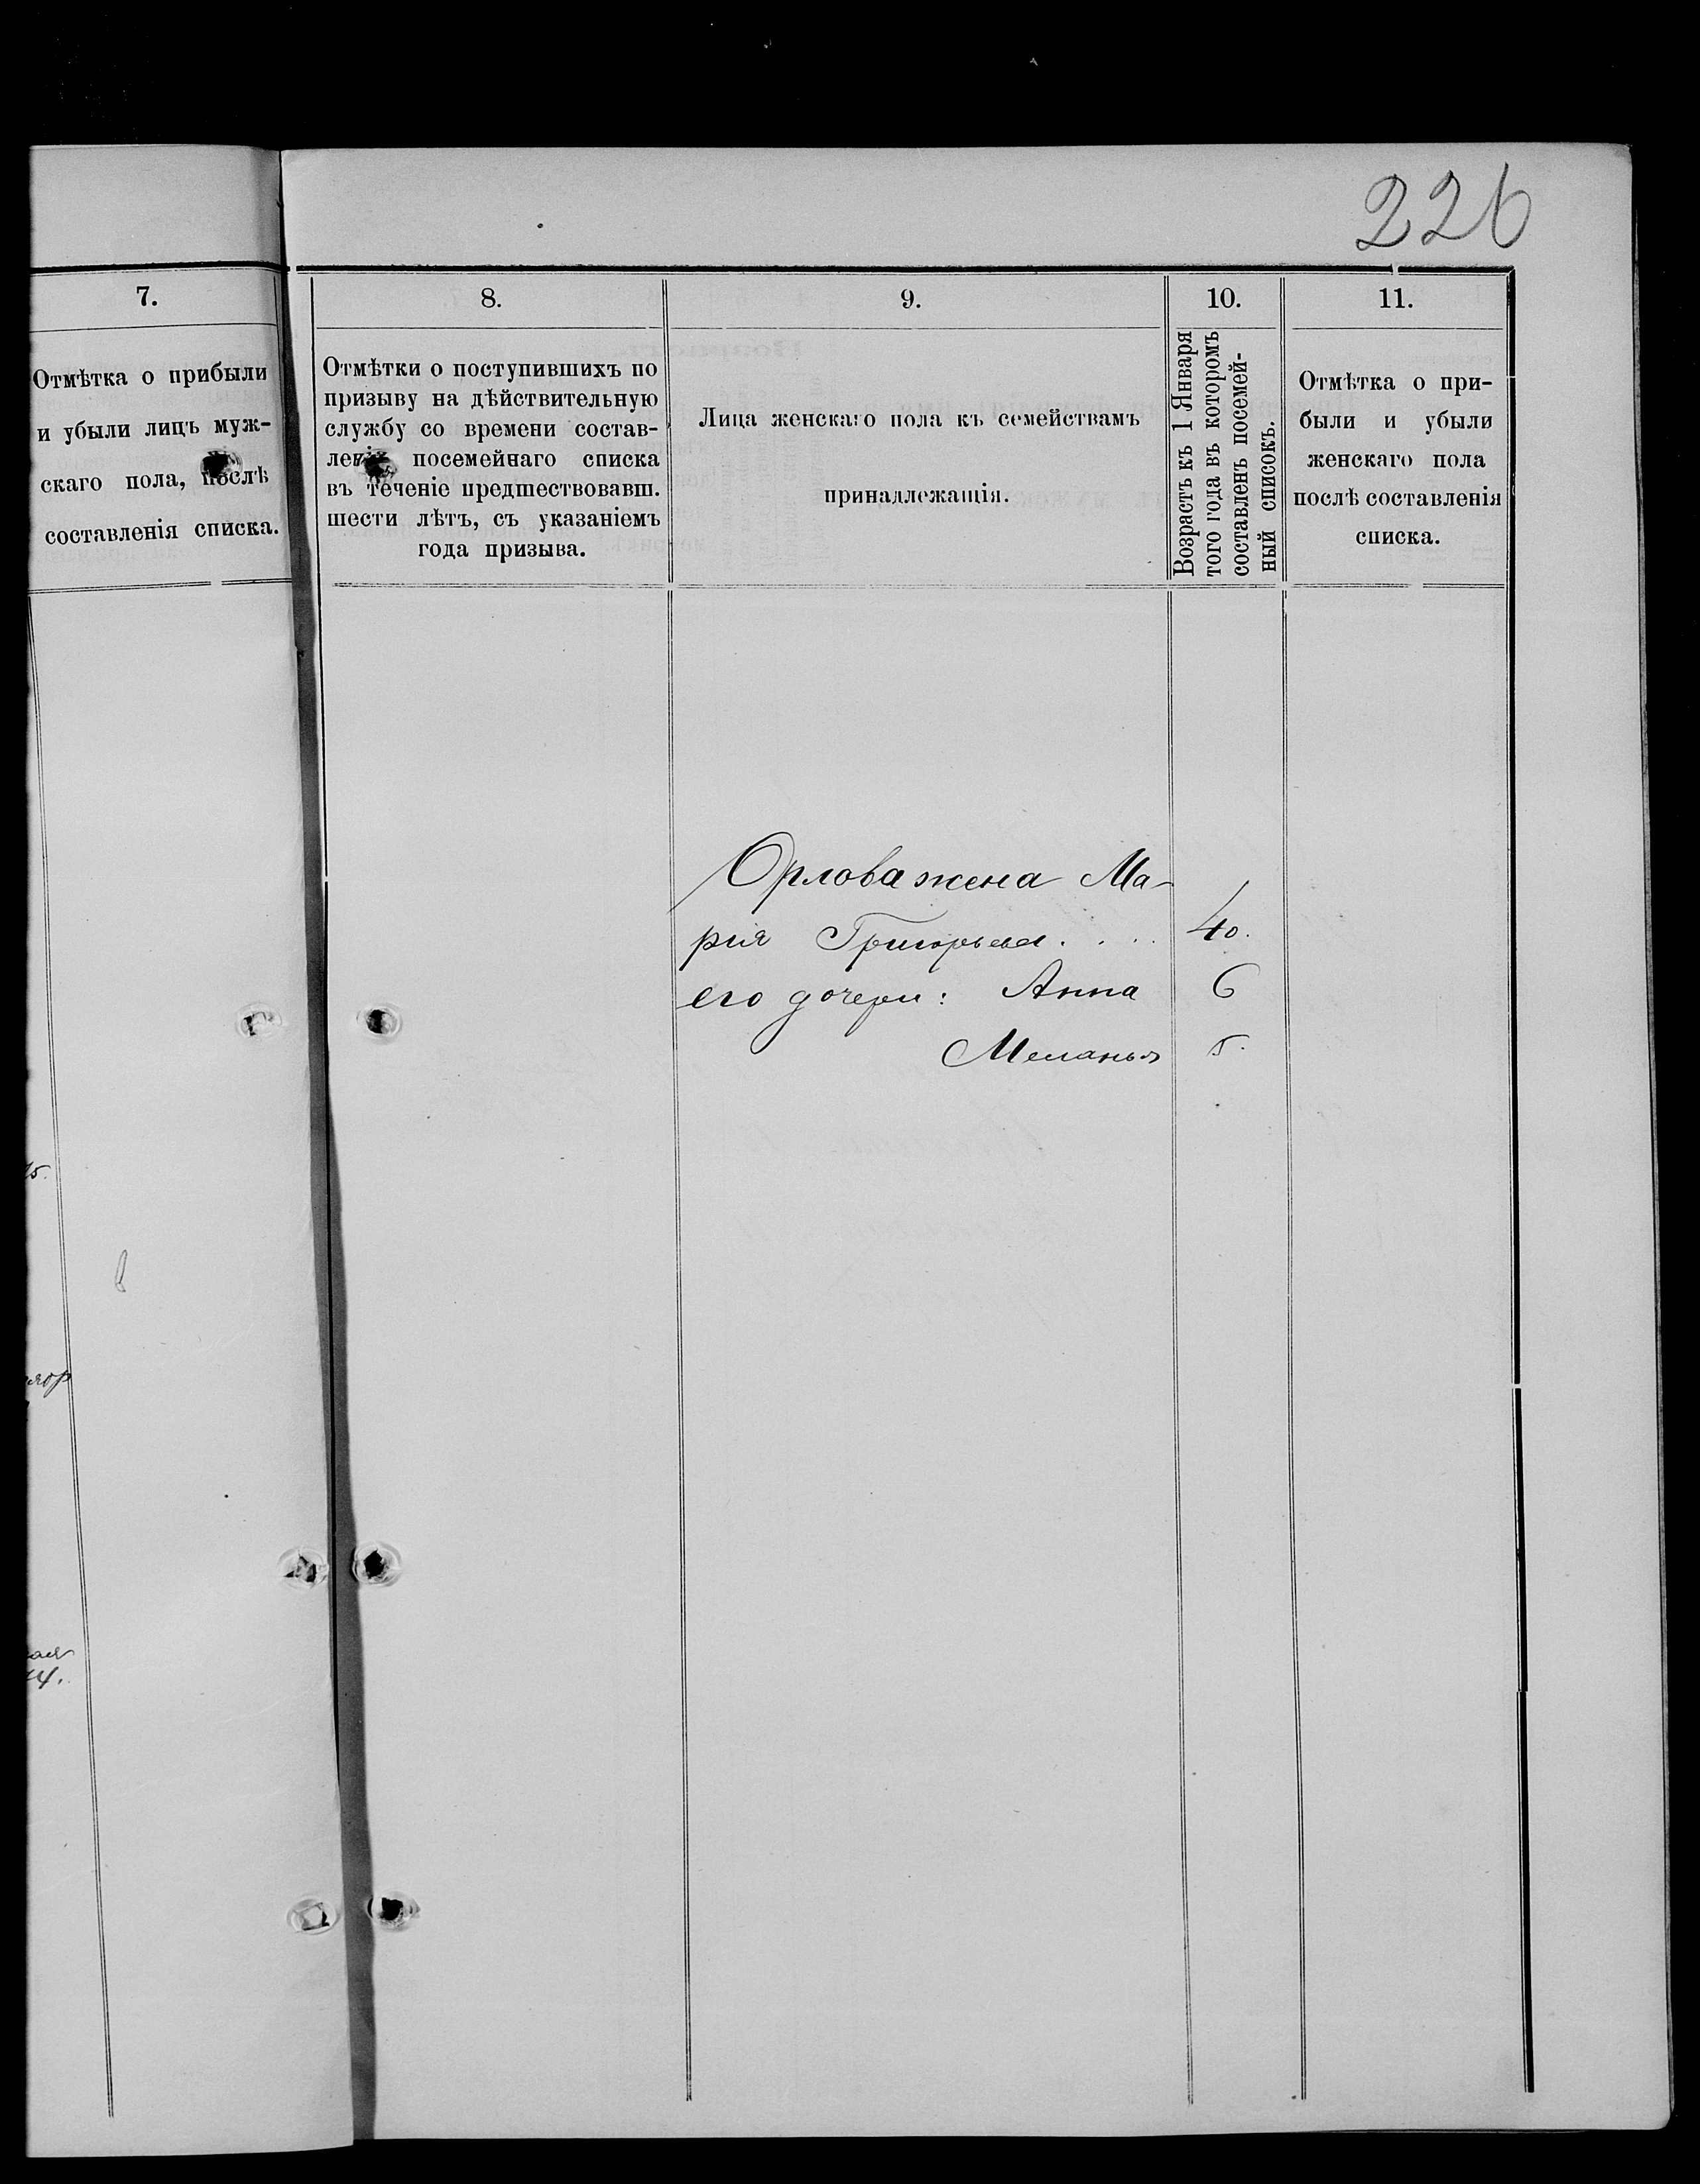 226
7.
Отмѣтка о прибыли
и убыли лицъ муж-
скаго пола, послѣ
составленія списка.
8.
Отмѣтки о поступившихъ по
призыву на дѣйствительную
службу со времени состав-
ленія посемейнаго списка
въ теченіе предшествовавш.
шести лѣтъ, съ указаніемъ
года призыва.
9.
Лица женскаго пола къ семействамъ
принадлежащія.
10.
Возрастъ къ 1 Января
того года въ которомъ
составленъ посемей-
ный списокъ.
11.
Отмѣтка о при-
были и убыли
женскаго пола
послѣ составленія
списка.
Орлова жена Ма-
рия Григорьева.... 40.
его дочери: Анна 6
Меланья 5.